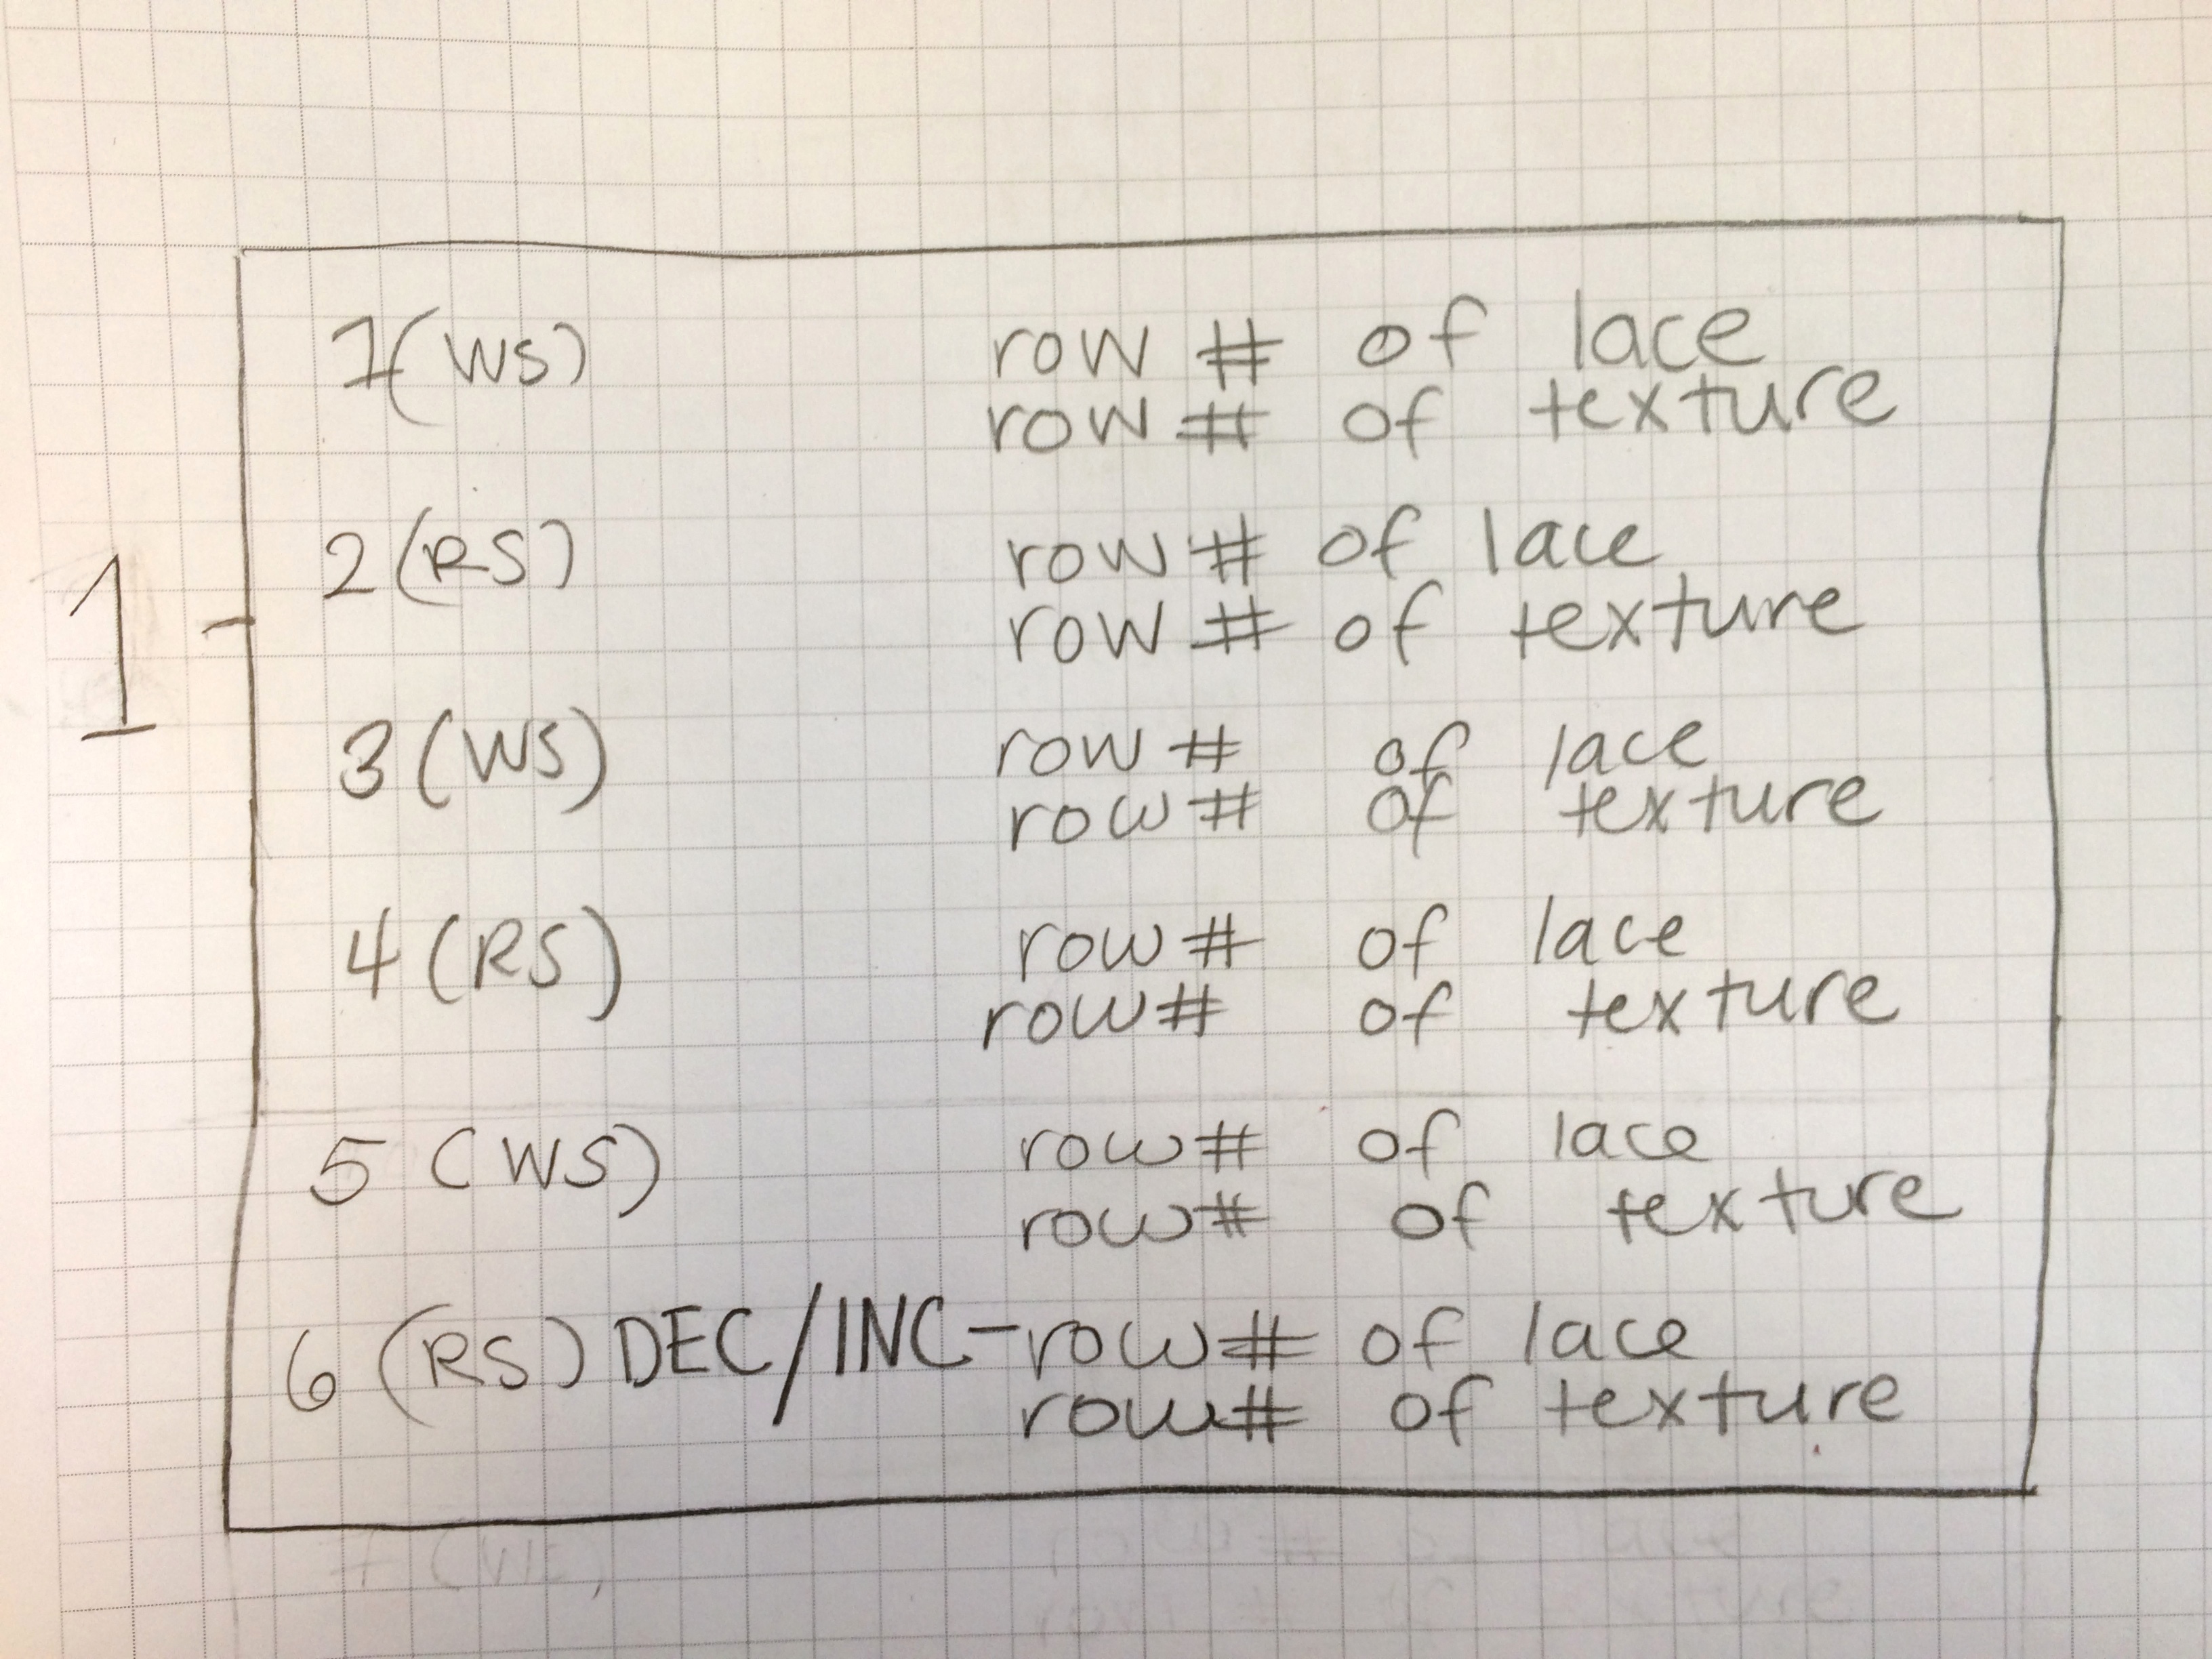 1 -
1 (WS) row # of lace
row # of texture
2 (RS) row # of lace
row # of texture
3 (WS) row # of lace
row # of texture
4 (RS) row # of lace
row # of texture
5 (WS) row # of lace
row # of texture
6 (RS) DEC/INC - row # of lace
row # of texture